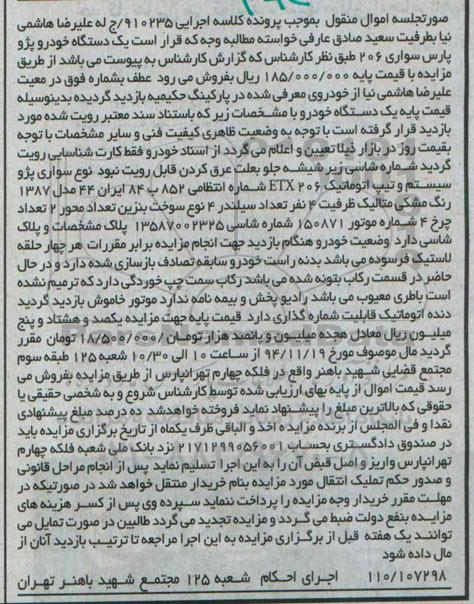 صورتجلسه اموال منقول بموجب پرونده کلاسه اجرایی ۹۱۰۲۳۵/ج له علیرضا هاشمی
نیا بطرفیت سعید صادق عارفی خواسته مطالبه وجه که قرار است یک دستگاه خودرو پژو
پارس سواری ۲۰۶ طبق نظر کارشناس که گزارش کارشناس به پیوست می باشد از طریق
مزایده با قیمت پایه ۱۸۵/۰۰۰/۰۰۰ ریال بفروش می رود عطف بشماره فوق در معیت
علیرضا هاشمی نیا از خودروی معرفی شده در پارکینگ حکیمیه بازدید گردیده بدینوسیله
قیمت پایه یک دستگاه خودرو با مشخصات زیر که باستناد سند معتبر رویت شده مورد
بازدید قرار گرفته است با توجه به وضعیت ظاهری کیفیت فنی و سایر مشخصات با توجه
بقیمت روز در بازار ذیلا تعیین و اعلام می گردد از اسناد خودرو فقط کارت شناسایی رویت
گردید شماره شاسی زیر شیشه جلو بعلت عرق کردن قابل رویت نبود نوع سواری پژو
سیستم و تیپ اتوماتیک ETX ۲۰۶ شماره انتظامی ۸۵۲ ب ۸۴ ایران ۴۴ مدل ۱۳۸۷
رنگ مشکی متالیک ظرفیت ۴ نفر تعداد سیلندر ۴ نوع سوخت بنزین تعداد محور ۲ تعداد
چرخ ۴ شماره موتور ۱۵۰۸۷۱ شماره شاسی ۱۳۵۸۷۰۰۲۳۲۵ پلاک مشخصات و پلاک
شاسی دارد وضعیت خودرو هنگام بازدید جهت انجام مزایده برابر مقررات هر چهار حلقه
لاستیک فرسوده می باشد بدنه راست خودرو سابقه تصادف بازسازی شده دارد و در حال
حاضر در قسمت رکاب بتونه شده می باشد رکاب سمت چپ خوردگی دارد که ترمیم نشده
است باطری معیوب می باشد رادیو پخش و بیمه نامه ندارد موتور خاموش بازدید گردید
دنده اتوماتیک قابلیت شماره گذاری دارد قیمت پایه جهت مزایده یکصد و هشتاد و پنج
میلیون ریال معادل هجده میلیون و پانصد هزار تومان /۱۸/۵۰۰/۰۰۰ تومان مقرر
گردید مال موصوف مورخ ۹۴/۱۱/۱۹ از ساعت ۱۰ الی ۱۰/۳۰ شعبه ۱۲۵ طبقه سوم
مجتمع قضایی شهید باهنر واقع در فلکه چهارم تهرانپارس از طریق مزایده بفروش می
رسد قیمت اموال از پایه بهای ارزیابی شده توسط کارشناس شروع و به شخصی حقیقی یا
حقوقی که بالاترین مبلغ را پیشنهاد نماید فروخته خواهدشد ده درصد مبلغ پیشنهادی
نقدا و فی المجلس از برنده مزایده اخذ و الباقی ظرف یکماه از تاریخ برگزاری مزایده باید
در صندوق دادگستری بحساب ۲۱۷۱۲۹۹۰۵۶۰۰۱ نزد بانک ملی شعبه فلکه چهارم
تهرانپارس واریز و اصل قبض آن را به این اجرا تسلیم نماید پس از انجام مراحل قانونی
و صدور حکم تملیک انتقال مورد مزایده بنام خریدار منتقل خواهد شد در صورتیکه در
مهلت مقرر خریدار وجه مزایده را پرداخت ننماید سپرده وی پس از کسر هزینه های
مزایده بنفع دولت ضبط می گردد و مزایده تجدید می گردد طالبین در صورت تمایل می
توانند یک هفته قبل از برگزاری مزایده به این اجرا مراجعه تا ترتیب بازدید آنان از
مال داده شود
۱۱۰/۱۰۷۲۹۸ اجرای احکام شعبه ۱۲۵ مجتمع شهید باهنر تهران